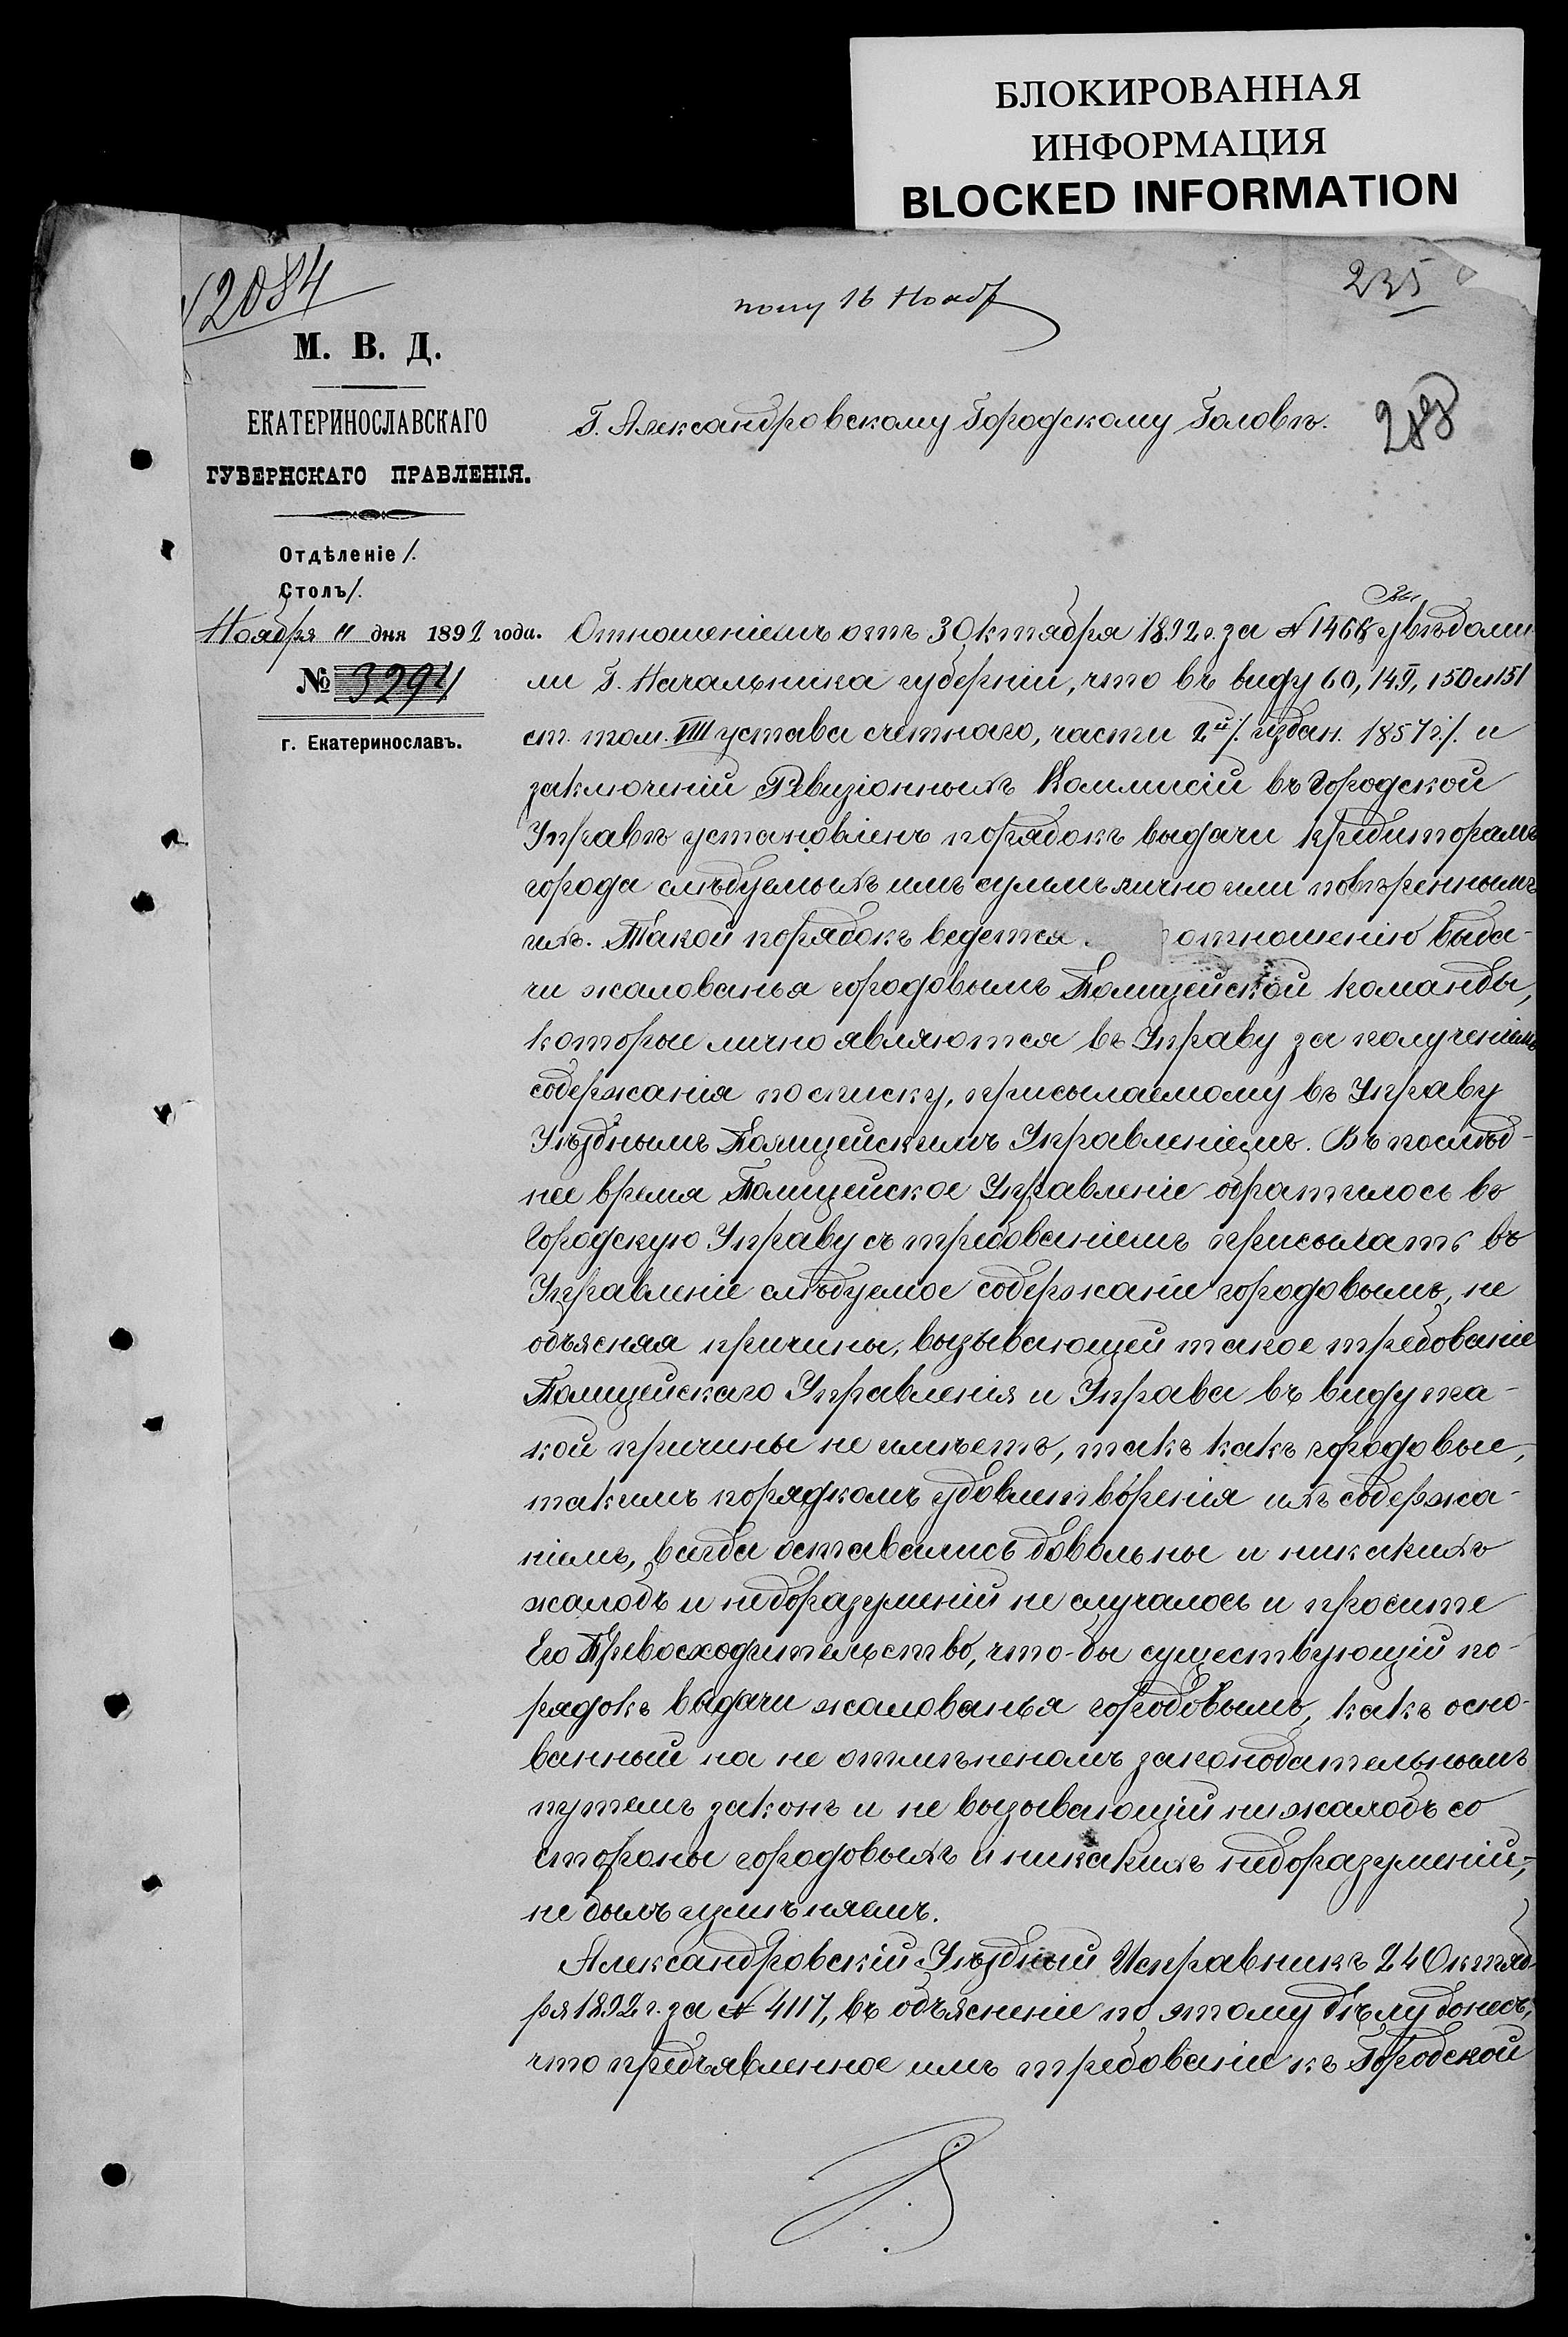 БЛОКИРОВАННАЯ
ИНФОРМАЦИЯ
BLOCKED INFORMATION
12084
полу 16 Нояб
235
288
М. В. Д.
ЕКАТЕРИНОСЛАВСКАГО
ГУБЕРНСКАГО ПРАВЛЕНІЯ.
Отдѣленіе 1.
Столъ 1.
Ноября 11 дня 1892 года.
№ 3294
г. Екатеринославъ.
Г. Александровскому Городскому Головѣ.
Вы
Отношеніемъ отъ 3 Октября 1892 г. за № 1466 увѣдоми-
ли Г. Начальника губерніи, что въ виду 60, 149, 150 и 151
ст. том. VIII устава счетнаго, части 2й/. издан. 1857 г/. и
заключеній Ревизіонныхъ Коммисій въ Городской
Управѣ установленъ порядокъ выдачи кредиторамъ
города слѣдуемыхъ имъ суммъ лично или повѣреннымъ
ихъ. Такой порядокъ ведется отношенію выда-
чи жалованья городовымъ Полицейской команды,
которые лично являются въ Управу за полученіемъ
содержанія по списку, присылаемому въ Управу
Уѣзднымъ Полицейскимъ Управленіемъ. Въ послѣд-
нее время Полицейское Управленіе обратилось въ
Городскую Управу съ требованіемъ присылать въ
Управленіе слѣдуемое содержаніе городовымъ, не
объясняя причины, вызывающей такое требованіе
Полицейскаго Управленія и Управа въ виду та-
кой причины не имѣетъ, такъ какъ городовые,
такимъ порядкомъ удовлетворенія ихъ содержа-
ніемъ, всегда оставались довольны и никакихъ
жалобъ и недоразумѣній не случалось и просите
Его Превосходительство, что-бы существующій по-
рядокъ выдачи жалованья городовымъ, какъ осно-
ванный на не отмѣненомъ законодательнымъ
путемъ законѣ и не вызывающій ни жалобъ со
стороны городовыхъ и никакихъ недоразумѣній,
не былъ измѣняемъ.
Александровскій Уѣздный Исправникъ 24 Октяб-
ря 1892 г. за № 4117, въ объясненіе по этому дѣлу донесъ,
что предъявленное имъ требованіе къ Городской